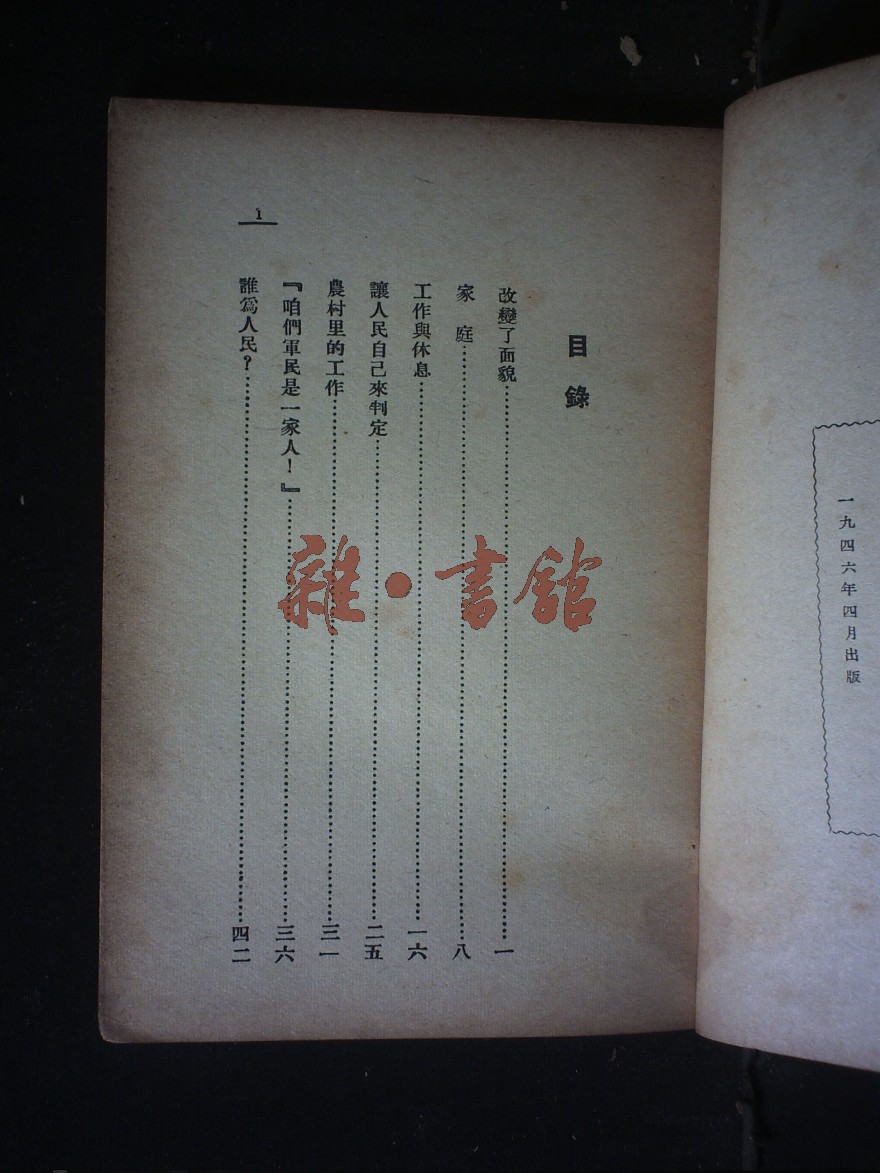 一九四六年四月出版
目錄
改變了面貌……一
家庭……八
工作與休息……一六
讓人民自己來判定……二五
農村里的工作……三一
『咱們軍民是一家人！』……三六
誰爲人民？……四二
1
雜·書館